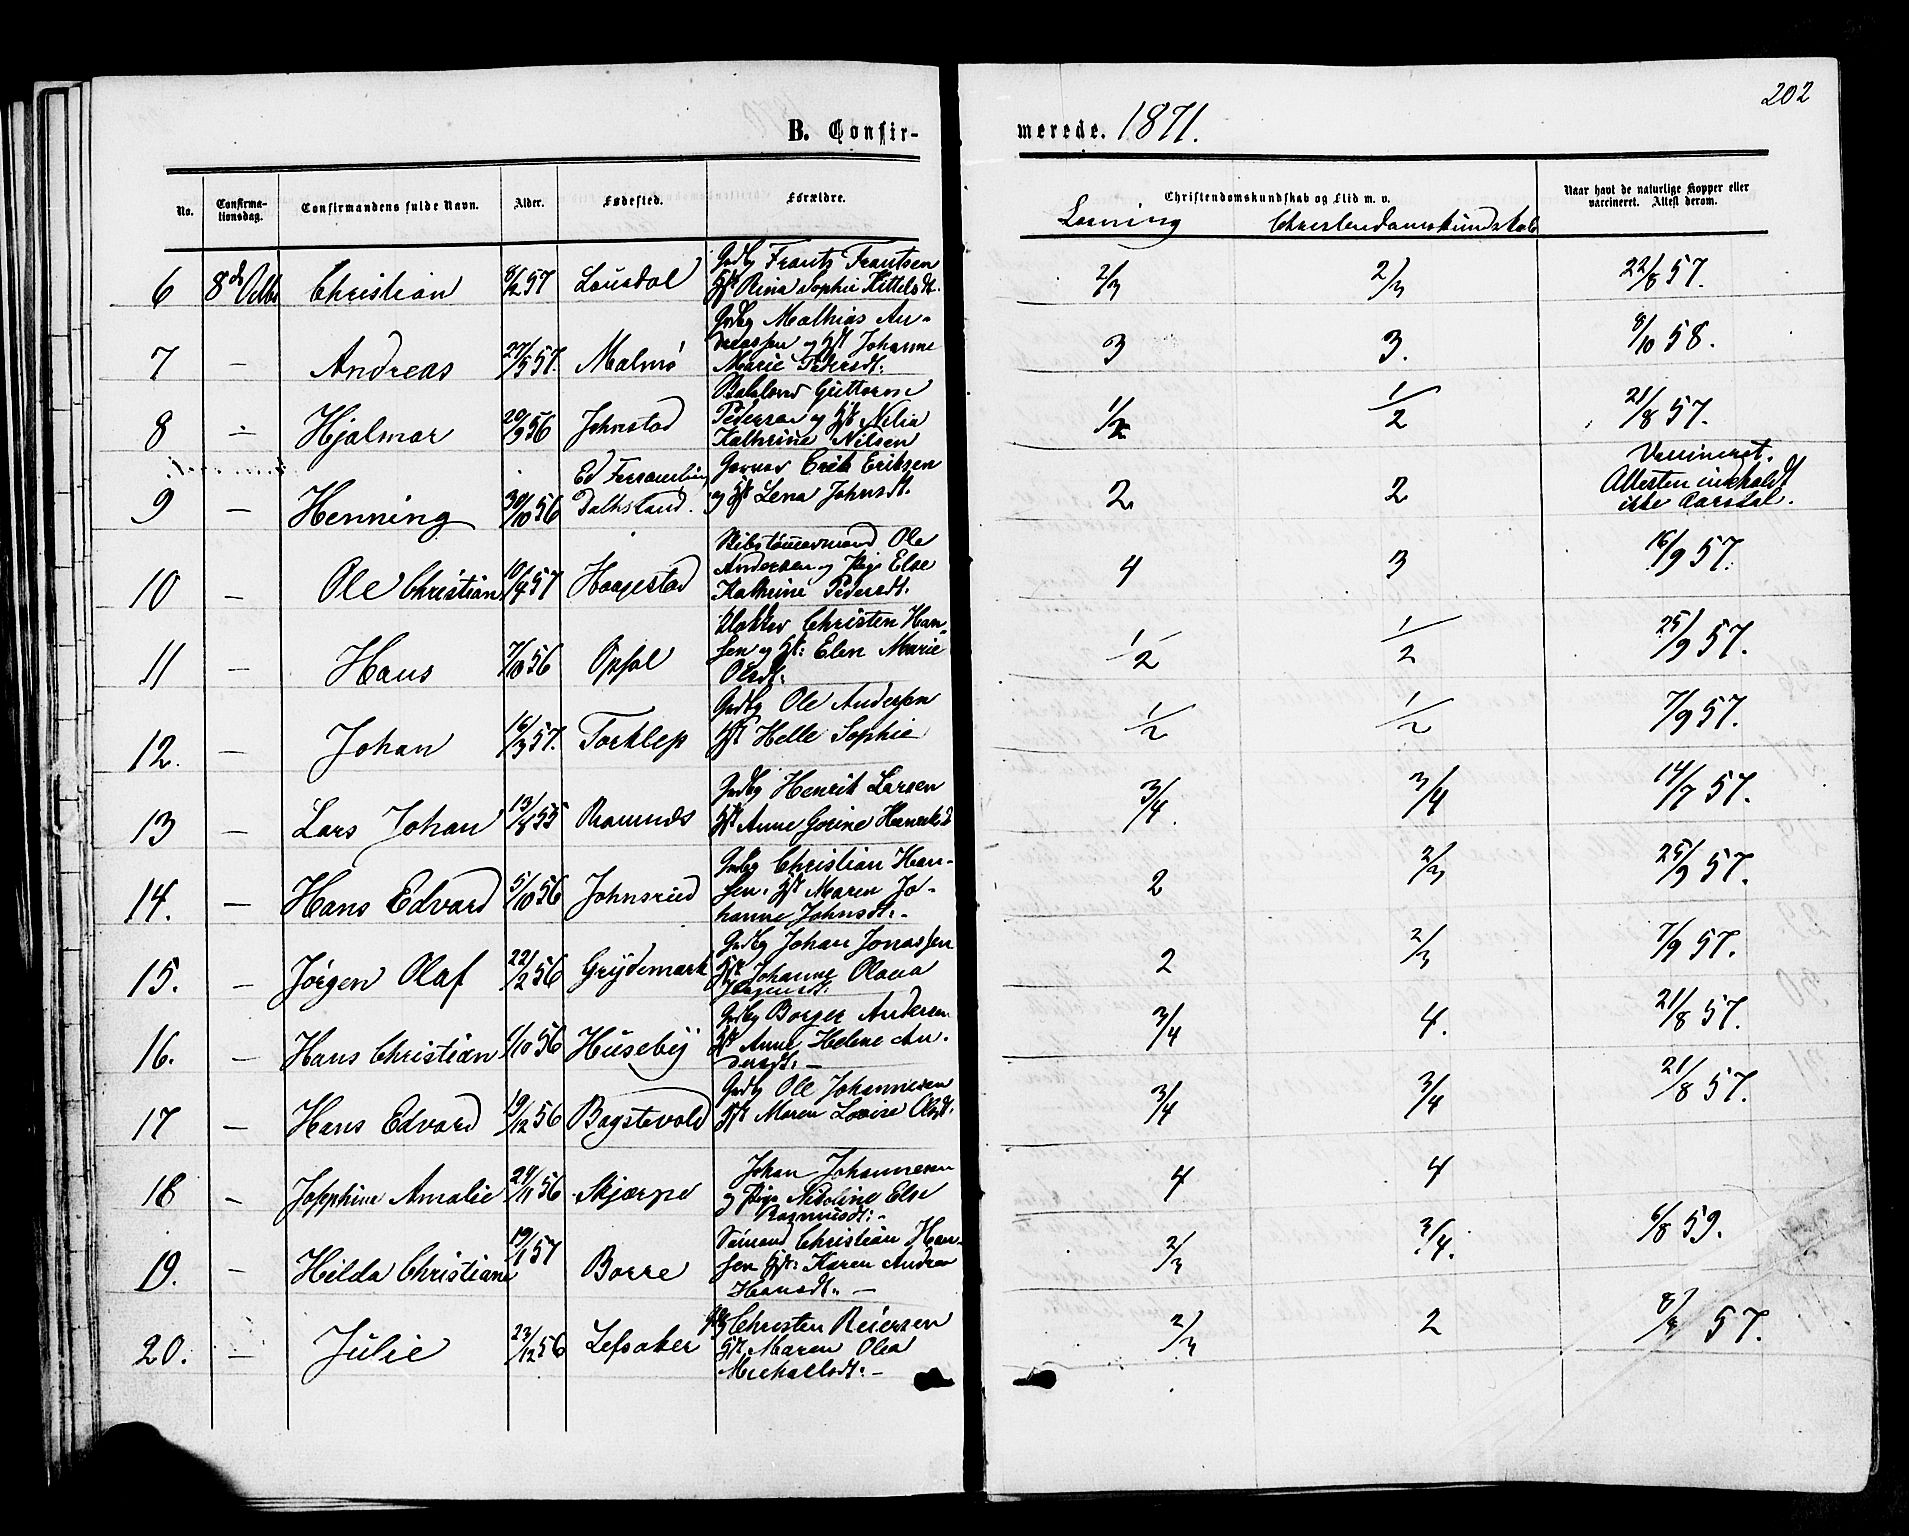 202
B. Confir-
merede. 1871.
No.
Confirma-
tionsdag.
Confirmandens fulde Navn.
Alder.
Fødested.
Forældre.
Christendomskundskab og Flid m. v.
Naar havt de naturlige Kopper eller
vaccineret. Attest derom.
Læsning Christendomskundskab
6 8de Octbr Christian 8/2 57 Lousdal Gdbg Frants Frantsen
Hst Rina Sophie Kittelsdt. 2/3 2/3 22/8 57.
7 — Andreas 27/5 57. Malmö Gdbg Mathias An-
dreassen og Hst Johanne
Marie Pedersdt: 3 3. 8/10 58.
8 — Hjalmar 20/9 56 Johnstad Guttorm
Pedersen og Hst Nilia
Kathrine Nilsen 1/2 1/2 21/8 57.
9 — Henning 30/10 56 Ed
Dalhsland. Garver Erik Eriksen
og Hst Lena Johnsdt. 2 2 Vaccineret.
Attesten indholdt
ikke Aarstal.
10 — Ole Christian 10/4 57 Haagestad Skibstømmermand Ole
Andersen og Pige Else
Kathrine Pedersdt. 4 3 16/9 57.
11 — Hans 7/8 56 Opsal Klokker Christen Han-
sen og Hst: Elen Marie
Olsdt: 1/2 1/2 25/9 57.
12. — Johan 16/3 57. Torklep Gdbg Ole Andersen
Hst Helle Sophie 1/2 1/2 7/9 57.
13 — Lars Johan 13/8 55 Ramnæs Gdbg Henrik Larsen
Hst Anne Gorine 3/4. 3/4 14/7 57.
14. — Hans Edvard 5/10 56 Johnsrud Gdbg Christian Han-
sen. Hst Maren Jo-
hanne Johnsdt:- 2 2/3 25/9 57.
15. — Jørgen Olaf 22/2 56 Grydemark Gdbg Johan Jonassen
Hst Johanne Olava
Jörgensdt: 2 2/3 7/9 57.
16. — Hans Christian 6/10 56 Huseby Gdbg Borger Andersen
Hst Anne Helene An-
dersdt: — 3/4 4. 21/8 57.
17 — Hans Edvard 19/12 56 Bagstevold Gdbg Ole Johannesen
Hst Maren Lovise Olsdt. 3/4 3/4 21/8 57.
18 — Josephine Amalie 24/11 56 Skjærpe Johan Johannesen
og Pige Nikoline Else
Rasmusdt:- 4 4
19. — Hilda Christiane 19/1 57 Borre Sömand Christian Han-
sen Hst: Karen Andrea
Hansdt: — 2/3 3/4. 6/8 59.
20. — Julie 23/12 56 Lefsaker Gdbg Christen Reiersen
Hst Maren Olea
Mikkelsdt: — 2/3 2 57.